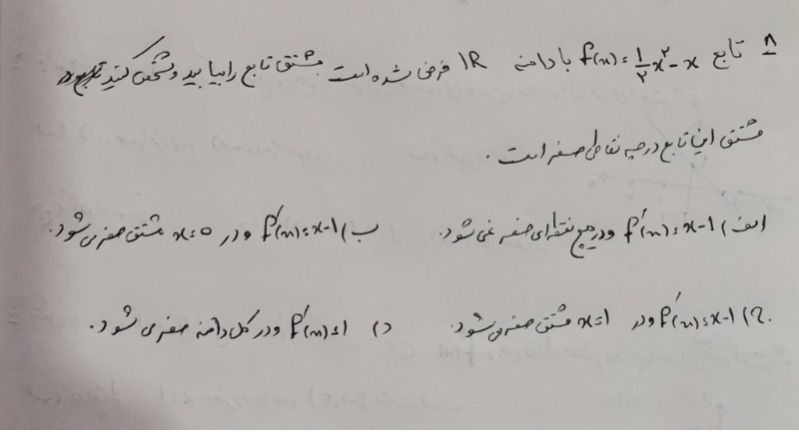 ۸ تابع f(x)=½x²-x با دامنه IR فرض شده است مشتق تابع را بیابید و مشخص کنید
مشتق این تابع در چه نقاطی صفر است.
الف) f'(x)=x-1 و در هیچ نقطه‌ای صفر نمی‌شود. ب) f'(x)=x-1 و در x=0 مشتق صفر می‌شود.
ج) f'(x)=x-1 و در x=1 مشتق صفر می‌شود. د) f'(x)=1 و در کل دامنه صفر می‌شود.